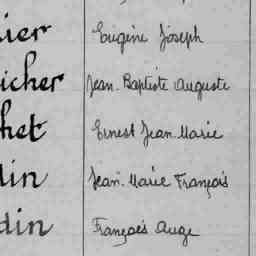 ier Eugène Joseph
icher Jean Baptiste Auguste
het Ernest Jean Marie
din Jean Marie François
din François Ange